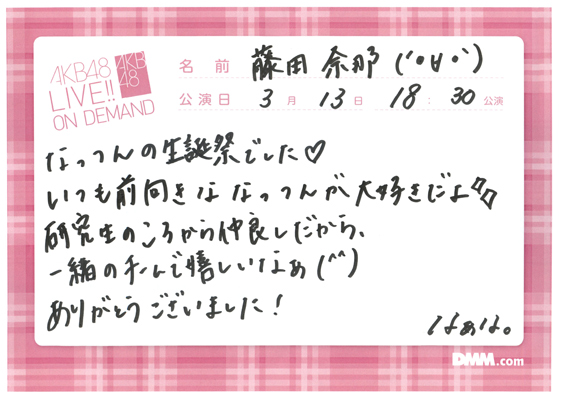 AKB48
LIVE!!
ON DEMAND
AKB
48
名前 藤田 奈那 ('●∀●')
公演日 3月 13日 18:30公演
なっつんの生誕祭でした♡
いつも前向きな なっつんが大好きだよ
研究生のころから仲良しだから、
一緒のチームで嬉しいなぁ(^^)
ありがとうございました!
なぁな。
DMM.com